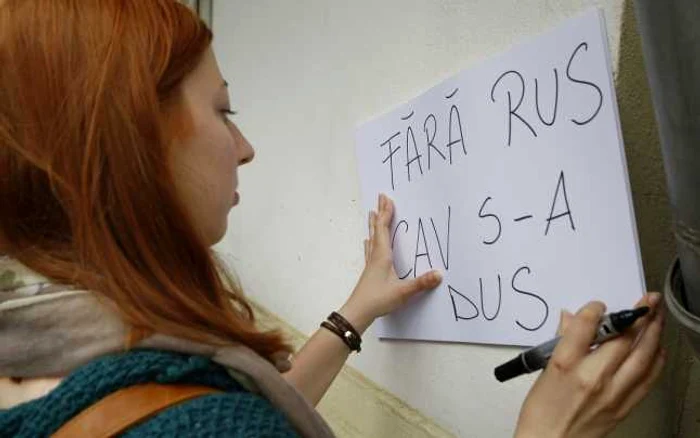 FĂRĂ RUS
CAV S-A
DUS